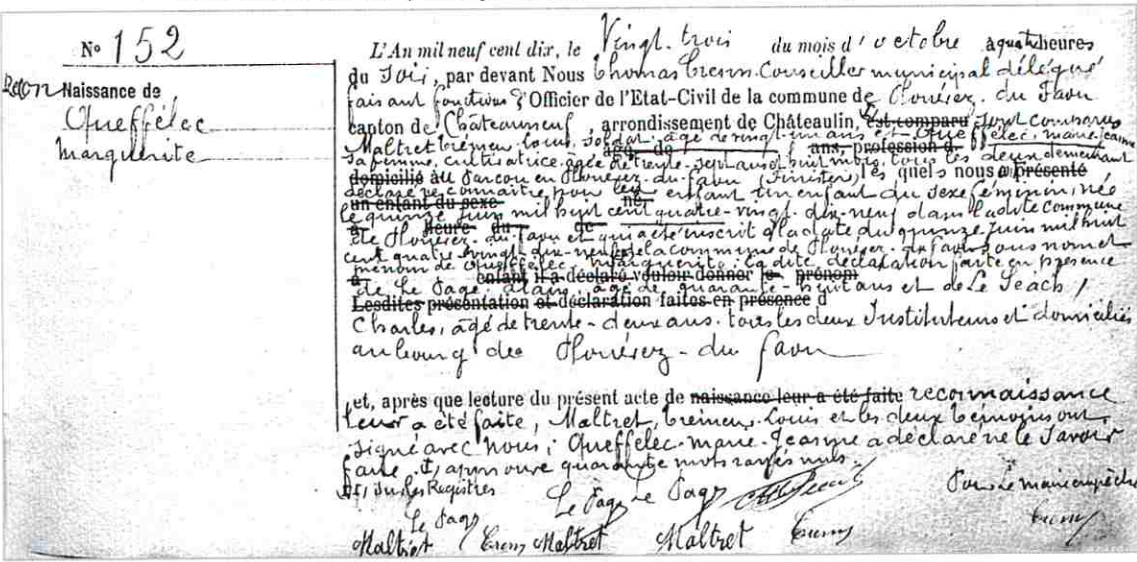 N° 152
Recon Naissance de
Queffélec
Marguerite
L'An mil neuf cent dix, le Vingt-trois du mois d'octobre à quatre heures
du soir, par devant Nous Thomas Conseiller municipal délégué
faisant fonctions d'Officier de l'Etat-Civil de la commune de Plonévez-du-Faou
canton de Châteauneuf, arrondissement de Châteaulin, est comparu sont comparus
Maltret Louis, soldat, âgé de vingt-un ans et Queffélec, Marie-Jeanne
âgé de ans, profession d
sa femme, cultivatrice, âgée de trente-sept ans et huit mois, tous les deux demeurant
domicilié au en Plonévez-du-Faou (Finistère), les quels nous a présenté
déclaré reconnaître pour leur enfant un enfant du sexe féminin, née
un enfant du sexe né
le quinze Juin mil huit cent quatre-vingt-dix-neuf dans ladite commune
à heure du de
de Plonévez-du-Faou et qui a été inscrit à la date du quinze Juin mil huit
cent quatre-vingt-dix-neuf de la commune de Plonévez-du-Faou sous nom et
prénom de Queffélec Marguerite; la dite déclaration faite en présence
enfant il a déclaré vouloir donner le prénom
de Le Page Alain, âgé de quarante-huit ans et de Le Séach,
Lesdites présentation et déclaration faites en présence d
Charles, âgé de trente-deux ans, tous les deux Instituteurs et domiciliés
au bourg de Plonévez-du-Faou
et, après que lecture du présent acte de naissance leur a été faite reconnaissance
leur a été faite, Maltret, Louis et les deux témoins ont
signé avec Nous; Queffélec-Marie-Jeanne a déclaré ne le savoir
faire. quarante mots rayés nuls.
sur les Registres Le Page Le Page Pour le maire empêché
Le Page
Maltret Maltret Maltret